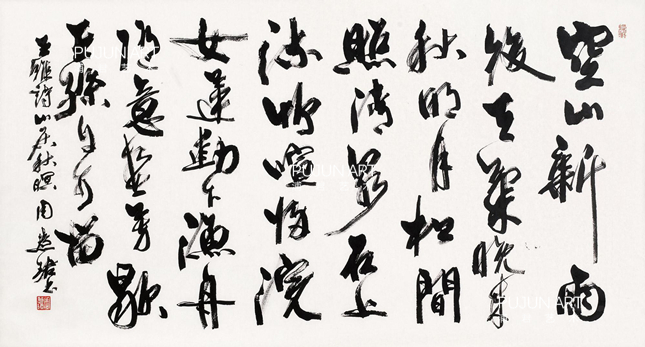 空山新雨
後天氣晚来
秋明月松間
照清泉石上
流竹喧歸浣
女蓮動下漁舟
随意春芳歇
王孫自可留
王維詩山居秋暝 周
PUJUN ART
PUJUN ART
PUJUN ART